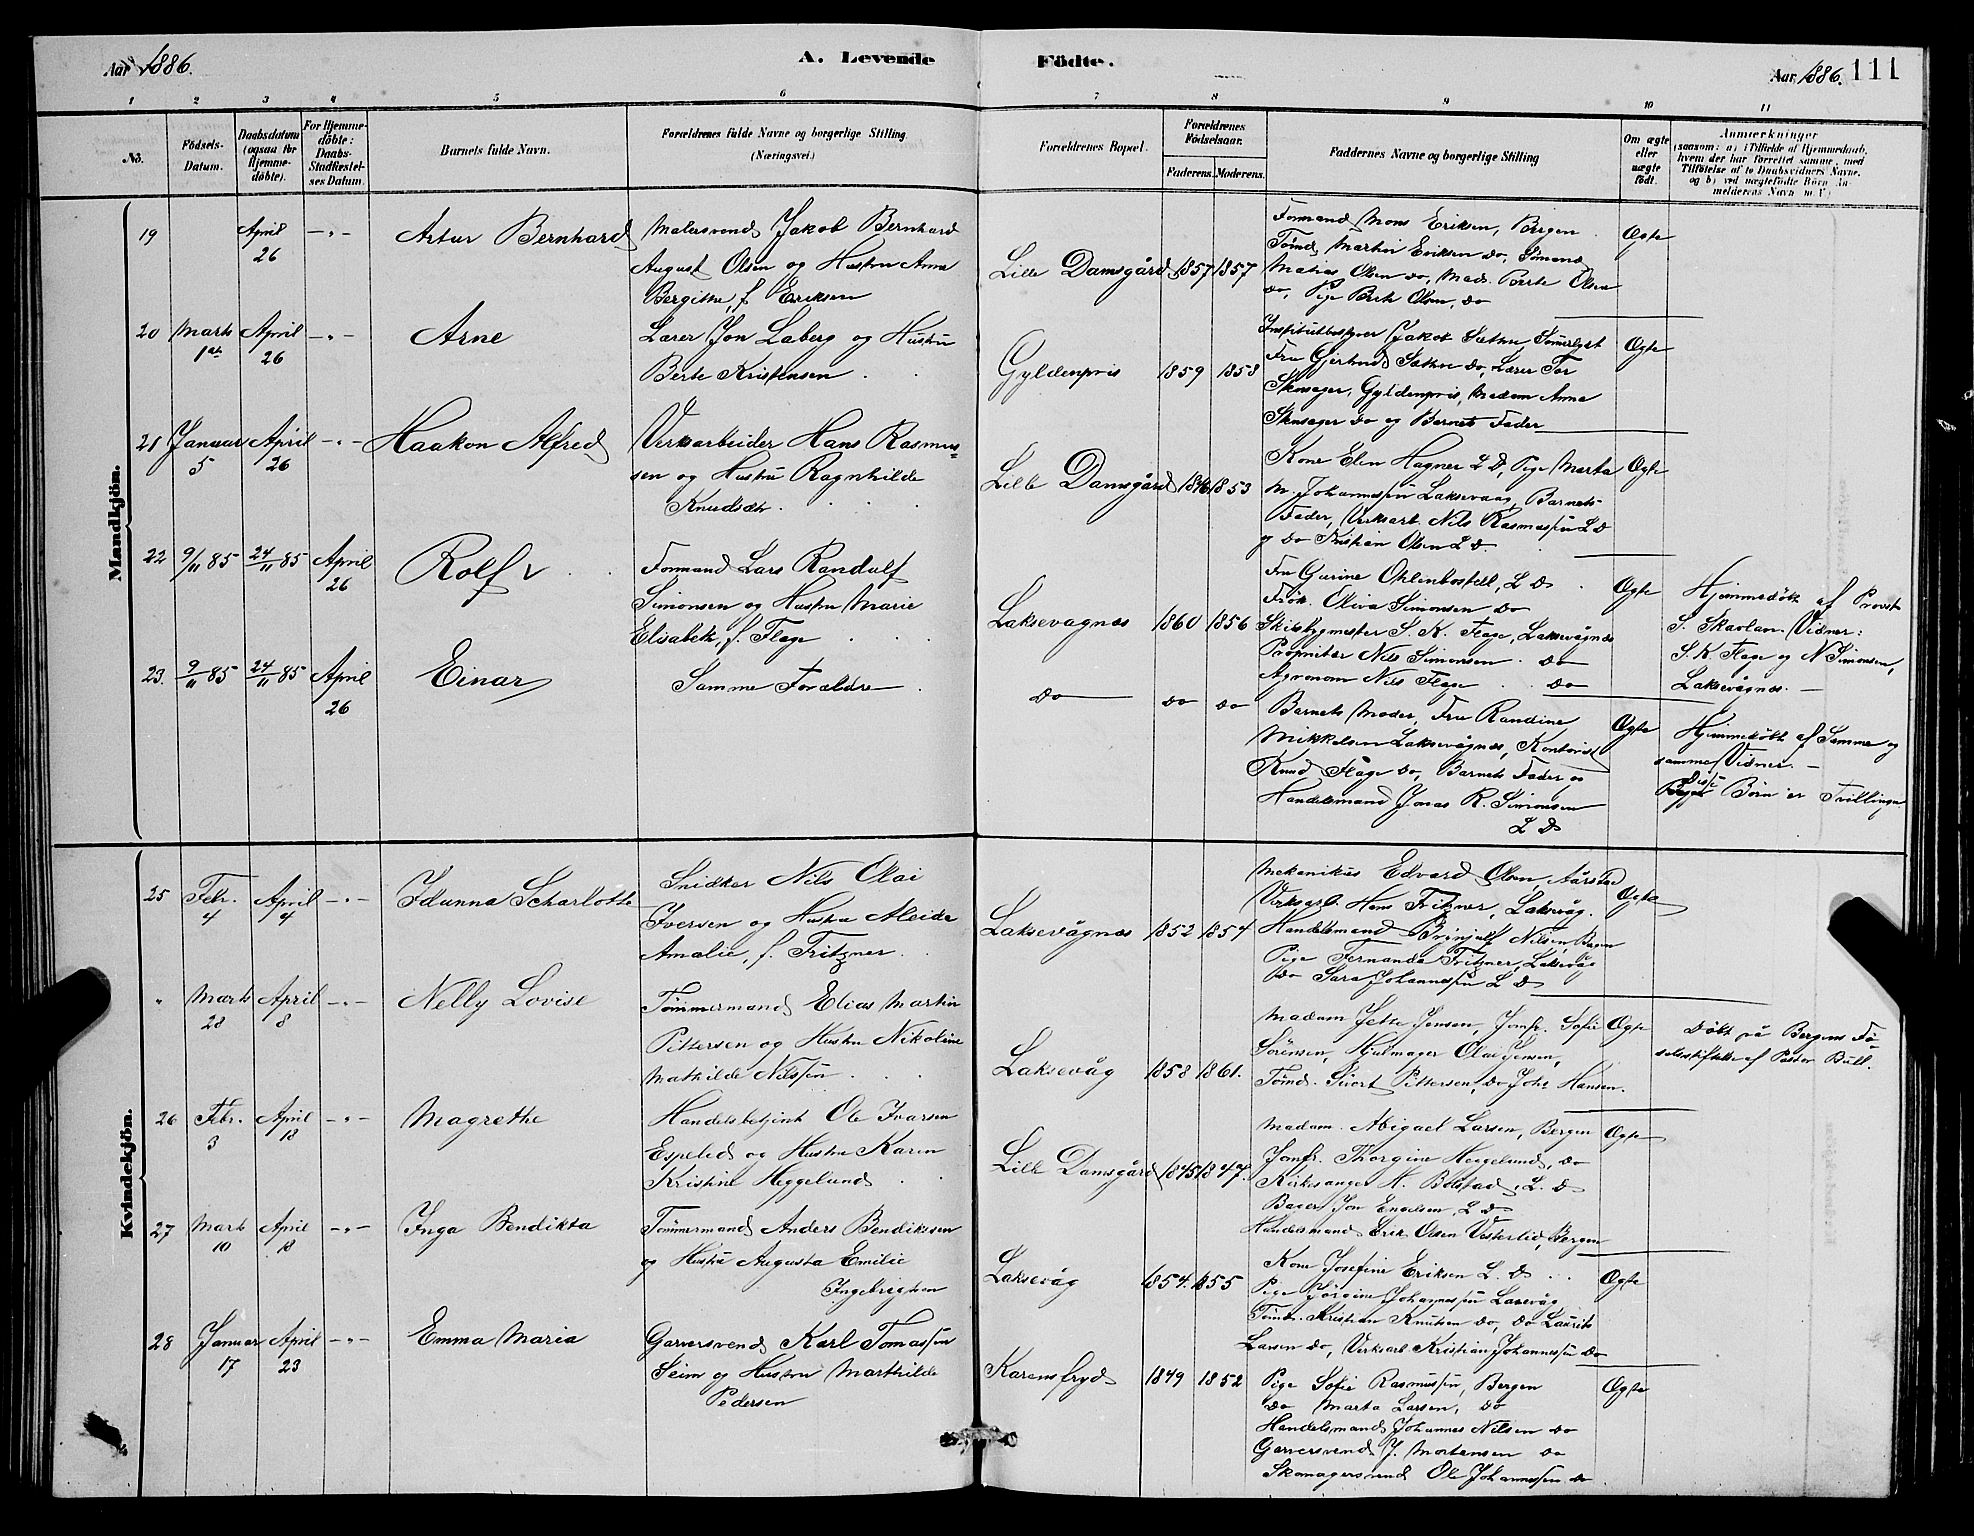 Aar 1886.
A. Levende Födte.
Aar 1886.
111
1 2 3 4 5 6 7 8 9 10 11
No.
Födsels-
Datum.
Daabsdatum
(ogsaa for
Hjemme-
döbte).
For Hjemme-
döbte:
Daabs-
Stadfæstel-
ses Datum.
Barnets fulde Navn.
Forældrenes fulde Navne og borgerlige Stilling
(Næringsvei.)
Forældrenes Bopæl.
Forældrenes
Födselsaar.
Faderens. Moderens.
Faddernes Navne og borgerlige Stilling
Om ægte
eller
uægte
födt.
Anmærkninger
(saasom: a) i Tilfælde af Hjemmedaab,
hvem der har forrettet samme, med
Tilföielse af to Daabsvidners Navne,
og b) ved uægtefödte Börn An-
melderens Navn m. V.)
Mandkjön.
19
April
26
-"-
Artur Bernhard
Malersvend Jakob Bernhard
August Olsen og Hustru Anna
Bergitte, f. Eriksen
Lille Damsgård
1857 1857
Formand Mons Eriksen, Bergen
Tömd. Martin Eriksen do, Sömand
Matias Olsen do, Mad. Berte Olsen
do, Pige Berte Olsen, do
Ægte
20
Marts
1ste
April
26
-"-
Arne
Lærer Jon Laberg og Hustru
Berte Kristensen
Gyldenpris
1859 1858
Institutbestyrer Jakob Sæthre
Fru Gjertrud Sæthre do, Lærer Tor
Skusager, Gyldenpris, Madam Anna
Skusager do og Barnets Fader
Ægte
21
Januar
5
April
26
-"-
Haakon Alfred
Verksarbeider Hans Rasmus-
sen og Hustru Ragnhilde
Knudsdtr.
Lille Damsgård
1846 1853
Kone Elen Hagner L D, Pige Marta
M. Johannessen Laksevaag, Barnets
Fader, Verksarb. Nils Rasmussen L D
og do Kristian Olsen L D.
Ægte
22
9/11 85
24/11 85
April
26
Rolf
Formand Lars Randulf
Simonsen og Hustru Marie
Elisabeth, f. Flage
Laksevagnes
1860 1856
Fru Gurine Ohlenbostell, L D
Frök. Oliva Simonsen do
Skibsbygmester S. K. Flage, Laksevågnes
Proprietær Nils Simonsen do
Agronom Nils Flage do
Ægte
Hjemmedöbt af Provst
S. Skavlan. Vidner:
S. K. Flage og N Simonsen,
Laksevågnes. -
23.
9/11 85
24/11 85
April
26
Einar
Samme Forældre
do
do do
Barnets Moder, Fru Randine
Mikkelsen Laksevågnes, Kontorist
Knud Flage do, Barnets Fader og
Handelsmand Jonas R. Simonsen
L D
Ægte
Hjemmedöbt af Samme og
samme Vidner. -
Disse
Börn er Tvillinger
Kvindekjön.
25
Febr.
4
April
4
-"-
Idunna Scharlotte
Snidker Nils Olai
Iversen og Hustru Aleida
Amalie, f. Fritzner
Laksevågnes
1852 1854
Mekanikus Edvard Olsen, Aarstad
Verksarb. Hans Fritzner, Laksevåg.
Handelsmand Brinjulf Nilsen, Bergen
Pige Fernanda Fritzner, Laksevåg
Do Sara Johannessen L D
Ægte
"
Marts
28
April
8
-"-
Nelly Lovise
Tömmermand Elias Martin
Pettersen og Hustru Nikoline
Mathilde Nilssen
Laksevåg
1858 1861.
Madam Jette Jensen, Jomfr. Sofie
Sörensen, Hjulmager Olai Jensen,
Tömd. Sivert Pettersen, do Johs Hansen.
Ægte
Döbt på Bergens Fö-
selsstiftelse af Pastor Bull.
26
Febr.
3
April
18
-"-
Magrethe
Handelsbetjent Ole Ivarsen
Espelid og Hustru Karen
Kristine Heggelund
Lille Damsgård
1845 1847.
Madam. Abigael Larsen, Bergen
Jomfr. Thorgine Heggelund, do
Kirkesanger H. Bolstad, L. D
Bager Jon Engelsen, L D
Handelsmand Erik Olsen Vesterlid, Bergen
Ægte
27
Marts
10
April
18
-"-
Inga Bendikta
Tömmermand Anders Bendiksen
og Hustru Augusta Emilie
Ingebrigtsen
Laksevåg
1854. 1855
Kone Josefine Eriksen L. D
Pige Jörgine Johannessen Laxevåg
Tömdr. Kristian Knutsen do, do Laurits
Larsen do, Verksarb Kristian Johannessen do
Ægte
28
Januar
17
April
23
-"-
Emma Maria
Garversvend Karl Tomassen
Seim og Hustru Marthilde
Pedersen
Karensfryd
1849 1852
Pige Sofie Rasmussen, Bergen
do Marta Larsen, do
Handelsmand Johannes Nilsen do
Garversvend J. Mortensen do
Skomagersvend Ole Johannessen do
Ægte